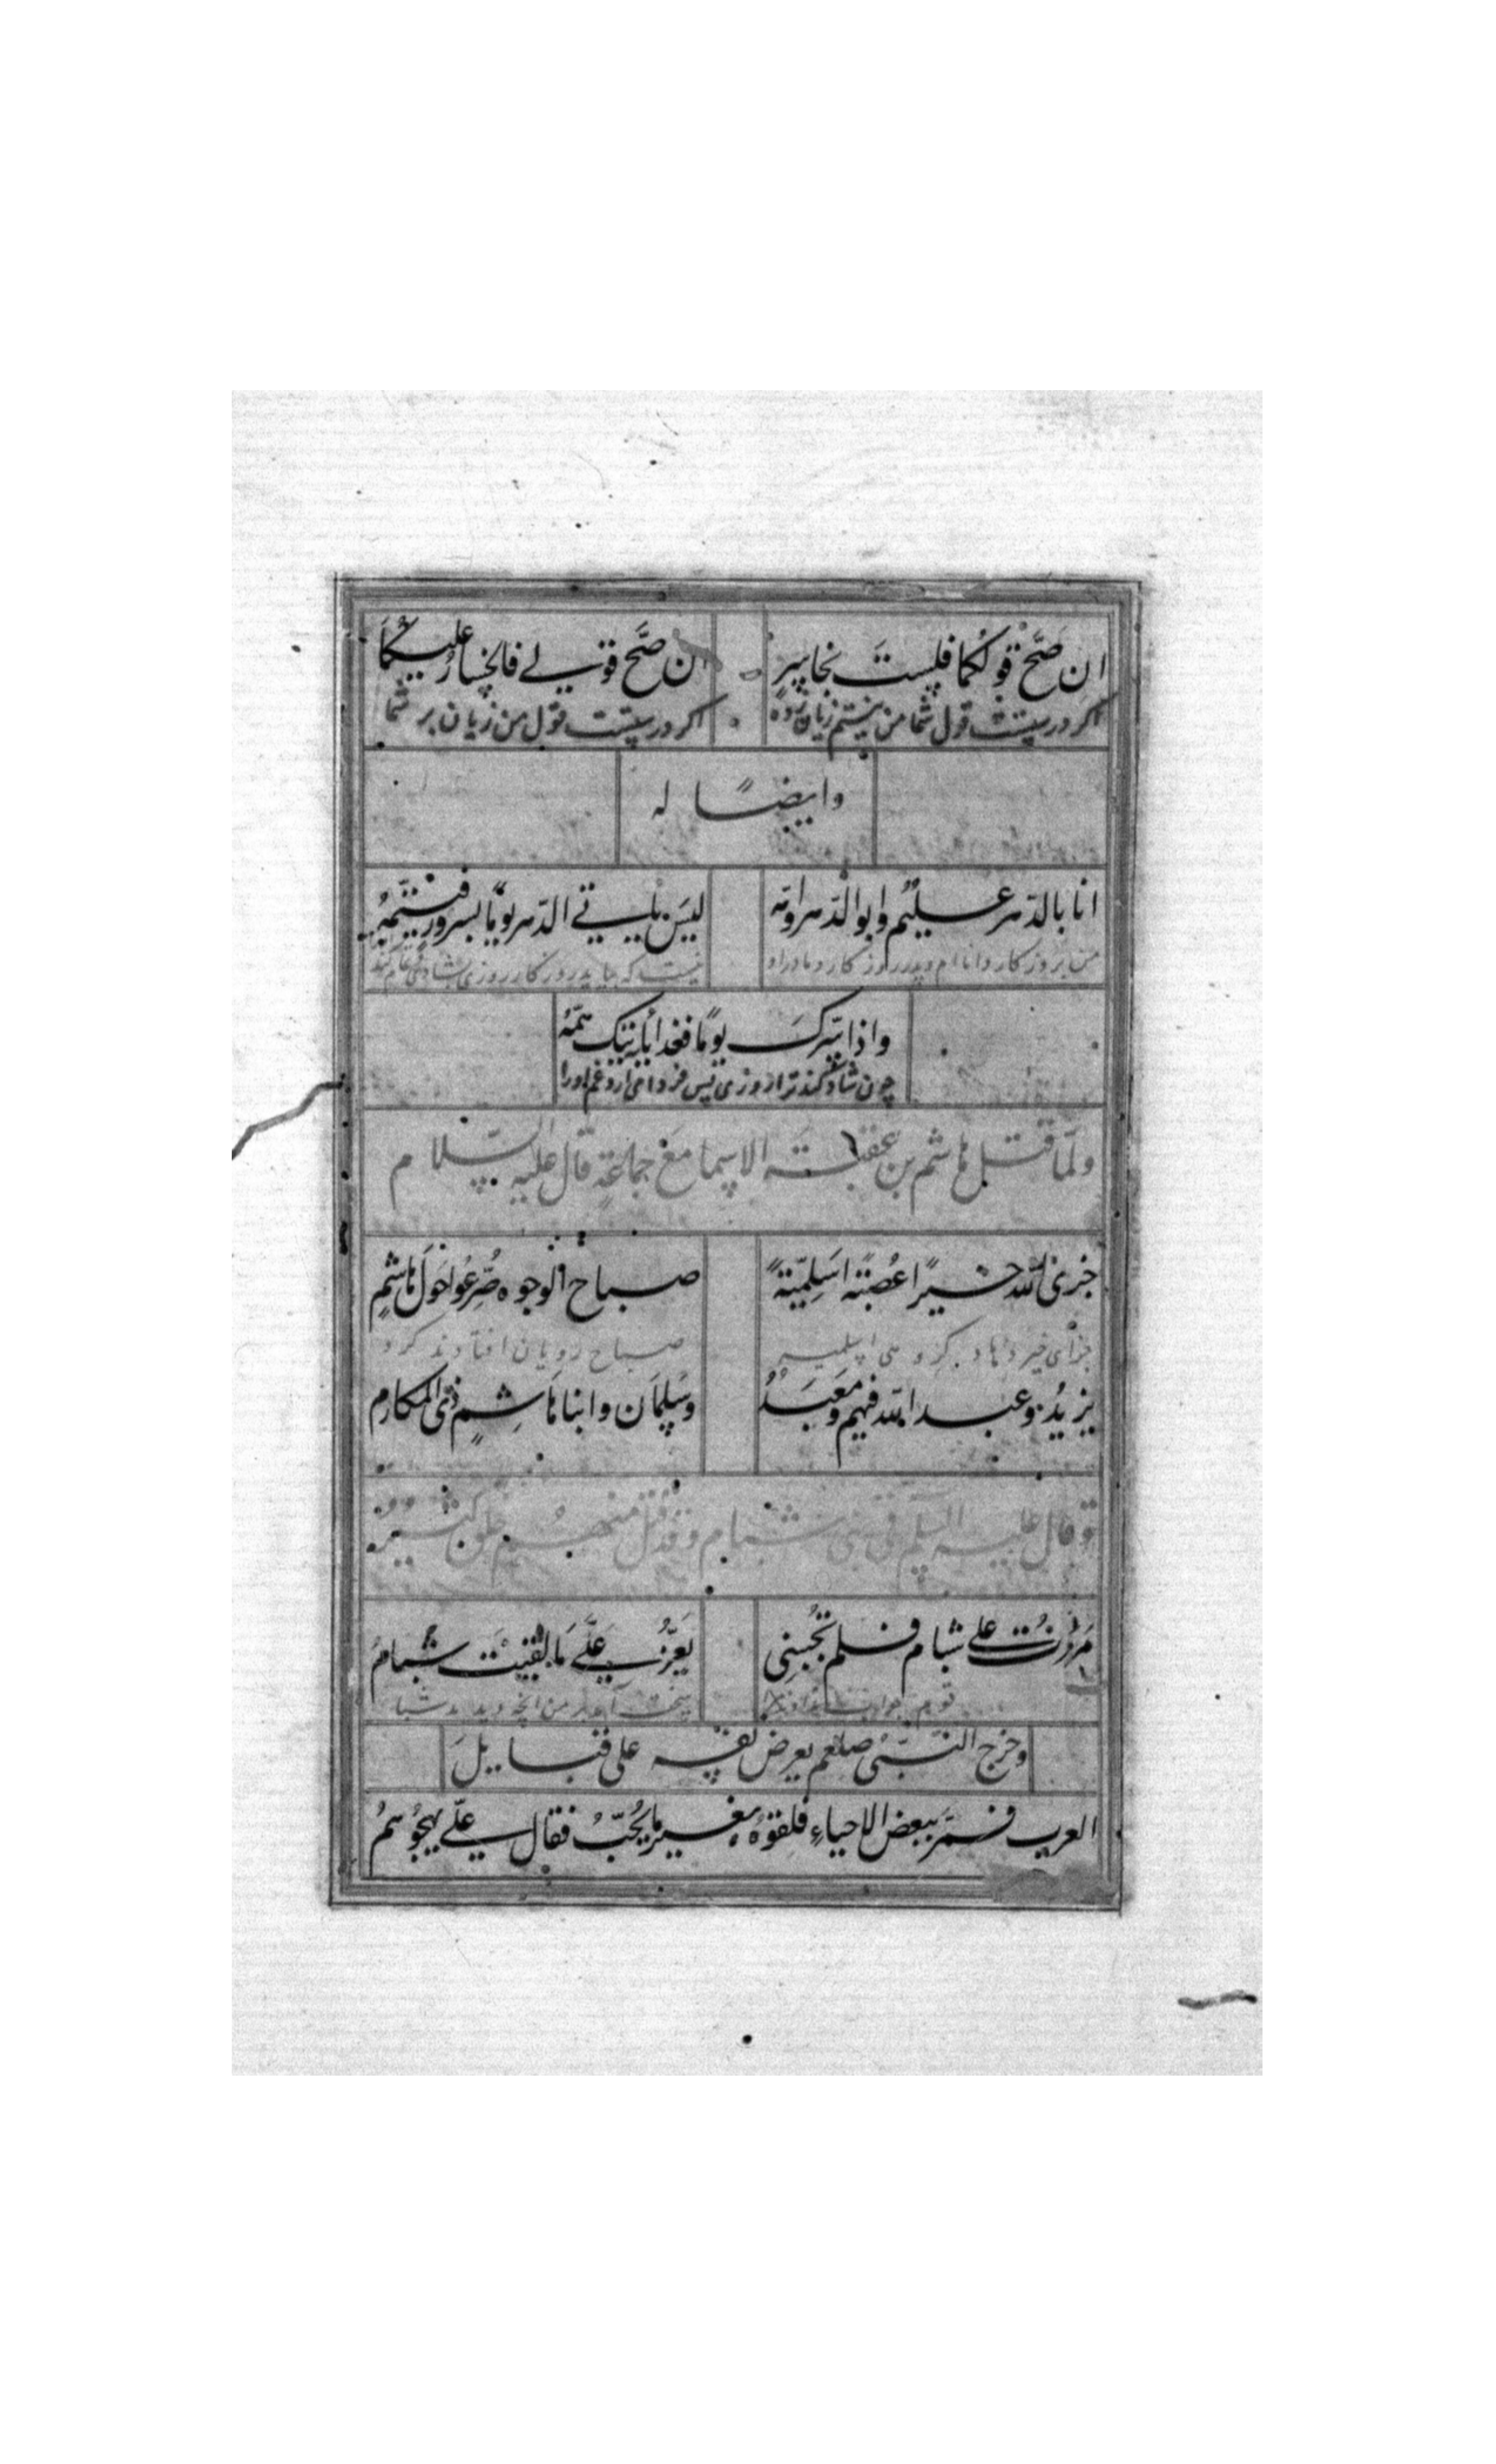 ان صَحَّ قولكما فلستَ بخاسرٍ ان صَحَّ قولى فالخسارُ عليكُما
اكر درستست قول شما من نيستم زيان زده اكر درستست قول من زيان بر شما
وايضًا له
انا بالدّهر عليمٌ وابو الدّهر وامّه ليسَ ياتى الدّهر يومًا بسرورٍ فيتمّهُ
من بروزكار داناام وپدر روزكار ومادر او نيست كه بيايد روزكار روزى بشادى تمام كند
واذا سرّكَ يومًا فغدًا ياتيك همّهُ
چون شاد كند ترا روزى پس فردا مى ارد غم اورا
ولمّا قتل هاشم بن عقبة الاسما مع جماعةٍ قال عليه السّلام
جزى الله خيرًا عُصبةً اَسلِميّةً صباح الوجوه صُرِّعُوا حَولَ هاشمٍ
جزاى خير دهاد صباح رويان افتادند كرد
يزيدُ وعبد الله فيهم ومَعبَدٌ وسُليمَان وابنا هَاشِمٍ ذى المكارمِ
وقال عليه السلم فى بنى شبام وقد قتل منهم خلق كثيرٌ
مَررْتُ على شبام فلم تُجبنِى يَعِزُّ عَلَىَّ مَا لقيَت شبامُ
سخت آمد بر من انچه ديد شبا
وخرج النّبىّ صلعم يعرض نفسه على قبايل
العرب فمرَّ ببعض الاحياءِ فلقوهُ بغير ما يُحبُّ فقال علىّ يهجُوهمُ